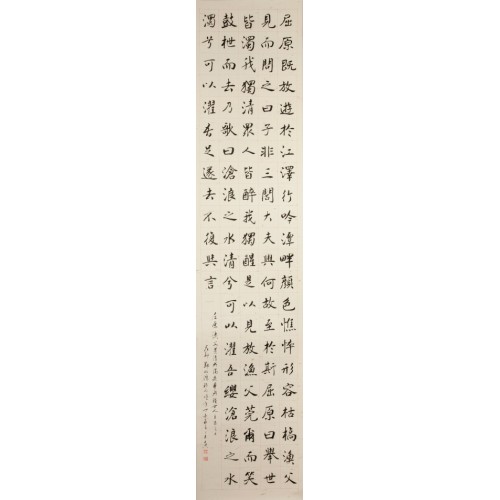 屈原既放遊於江澤行吟潭畔顏色憔悴形容枯槁漁父
見而問之曰子非三閭大夫與何故至於斯屈原曰舉世
皆濁我獨清眾人皆醉我獨醒是以見放漁父莞爾而笑
鼓枻而去乃歌曰滄浪之水清兮可以濯吾纓滄浪之水
濁兮可以濯吾足遂去不復與言